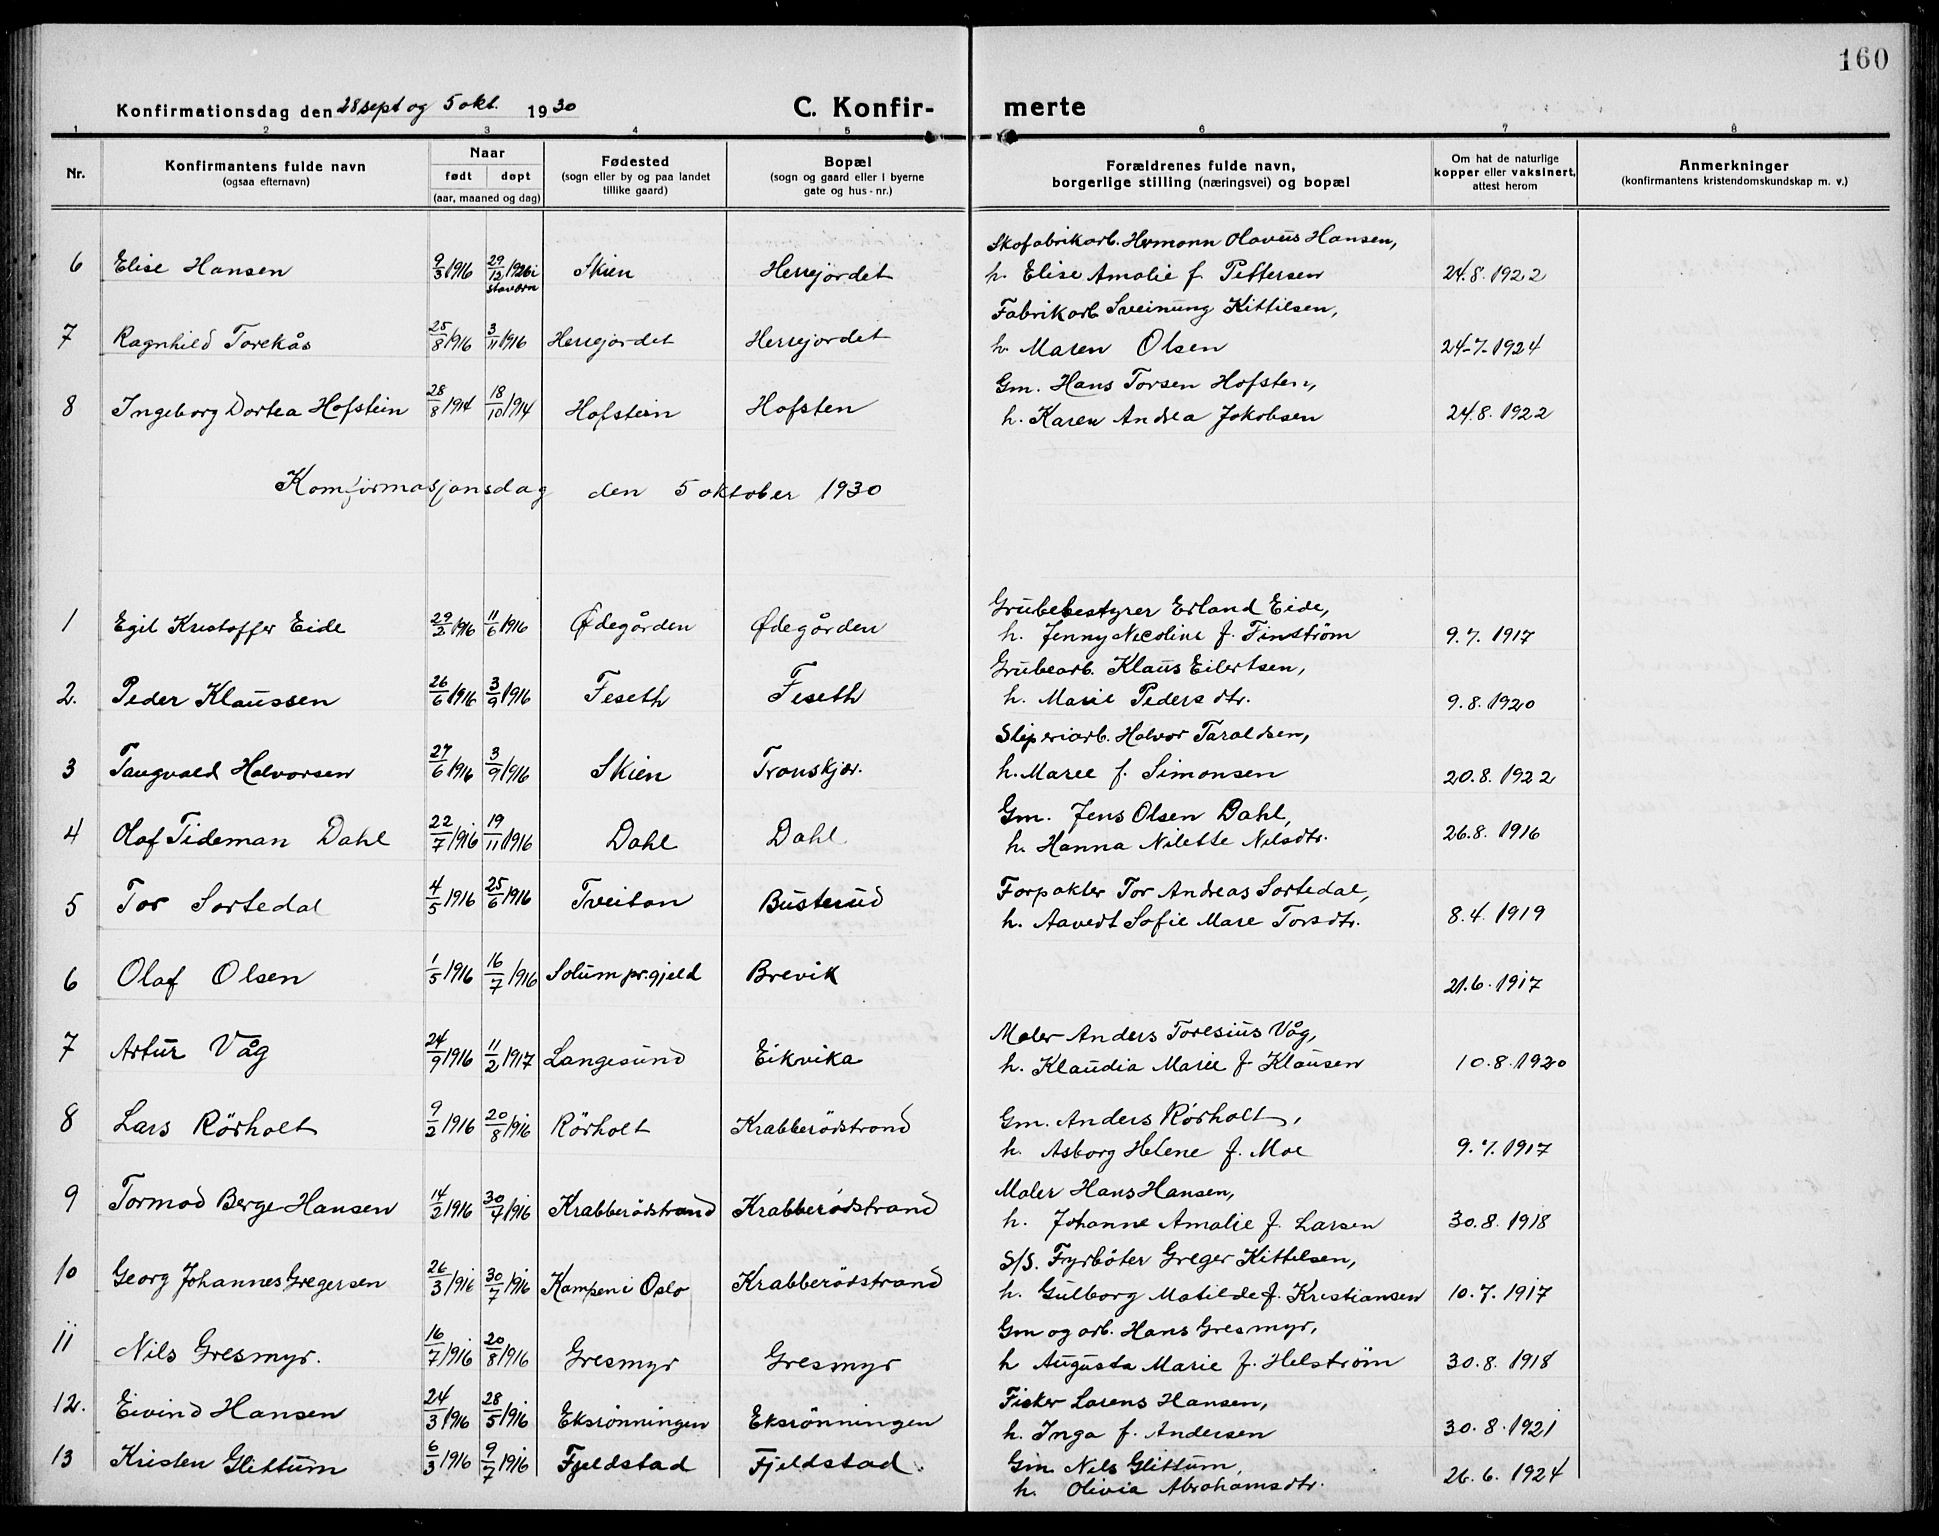 160
Konfirmationsdag den 28 sept og 5 okt. 1930 C. Konfir- merte
1 2 3 4 5 6 7 8
Nr. Konfirmantens fulde navn (ogsaa efternavn) Naar født døpt (aar, maaned og dag) Fødested (sogn eller by og paa landet tillike gaard) Bopæl (sogn og gaard eller i byerne gate og hus - nr.) Forældrenes fulde navn, borgerlige stilling (næringsvei) og bopæl Om hat de naturlige kopper eller vaksinert, attest herom Anmerkninger (konfirmantens kristendomskundskap m. v.)
Skofabrikarb. Hermann Olavus Hansen,
6 Elise Hansen 9/3 1916 29/12 1926 i Stavern Skien Herrejordet h. Elise Amalie f. Pettersen 24.8.1922
Fabrikarb. Sveinung Kittilsen,
7 Ragnhild Torekås 25/8 1916 3/11 1916 Herrejordet Herrejordet h. Maren Olsen 24-7-1924
Gm. Hans Torsen Hofsten,
8 Ingeborg Dortea Hofstein 28/8 1914 18/10 1914 Hofstein Hofsten h. Karen Andrea Jakobsen 24.8.1922
Komfirmasjonsdag den 5 oktober 1930
Grubebestyrer Erland Eide,
1 Egil Kristoffer Eide 29/2 1916 11/6 1916 Ødegården Ødegården h. Jenny Nicoline f. Finstrøm 9.7.1917
Grubearb. Klaus Eilertsen,
2. Peder Klaussen 26/6 1916 3/9 1916 Feseth Feseth h. Marie Pedersdtr. 9.8.1920
Sliperiarb. Halvor Taraldsen,
3 Taugvald Halvorsen 27/6 1916 3/9 1916 Skien Transkjær. h. Marie f. Simonsen 20.8.1922
Gm. Jens Olsen Dahl,
4 Olaf Tideman Dahl 22/7 1916 19/11 1916 Dahl Dahl. h. Hanna Nilette Nilsdtr. 26.8.1916
Forpakter Tor Andreas Sortedal,
5 Tor Sortedal 4/5 1916 25/6 1916 Tveitan Busterud h. Aavedt Sofie Marie Torsdtr. 8.4.1919
6 Olaf Olsen 1/5 1916 16/7 1916 Solum pr.gjeld Brevik 21.6.1917
Maler Anders Toresius Våg,
7 Artur Våg 24/9 1916 11/2 1917 Langesund Eikvika h. Klaudia Marie f. Klausen 10.8.1920
Gm. Anders Rörholt,
8 Lars Rörholt 9/2 1916 20/8 1916 Rörholt Krabberödstrand h. Asborg Helene f. Moe 9.7.1917
Maler Hans Hansen,
9 Tormod Berge Hansen 14/2 1916 30/7 1916 Krabberödstrand Krabberödstrand h. Johanne Amalie f. Larsen 30.8.1918
S/S. Fyrböter Greger Kittelsen,
10 Georg Johannes Gregersen 26/3 1916 30/7 1916 Kampen i Oslo Krabberödstrand h. Gulborg Matilde f. Kristiansen 10.7.1917
Gm og arb. Hans Gresmyr,
11 Nils Gresmyr. 16/7 1916 20/8 1916 Gresmyr Gresmyr h Augusta Marie f. Helstrøm 30.8.1918
Fisker Lorens Hansen,
12. Eivind Hansen 24/3 1916 28/5 1916 Eksrönningen Eksrönningen h. Inga f. Andersen 30.8.1921
13 Kristen Glittum 6/3 1916 9/7 1916 Fjeldstad Fjeldstad. Gm. Nils Glittum, 26.6.1924
h. Olivia Abrahamsdtr.